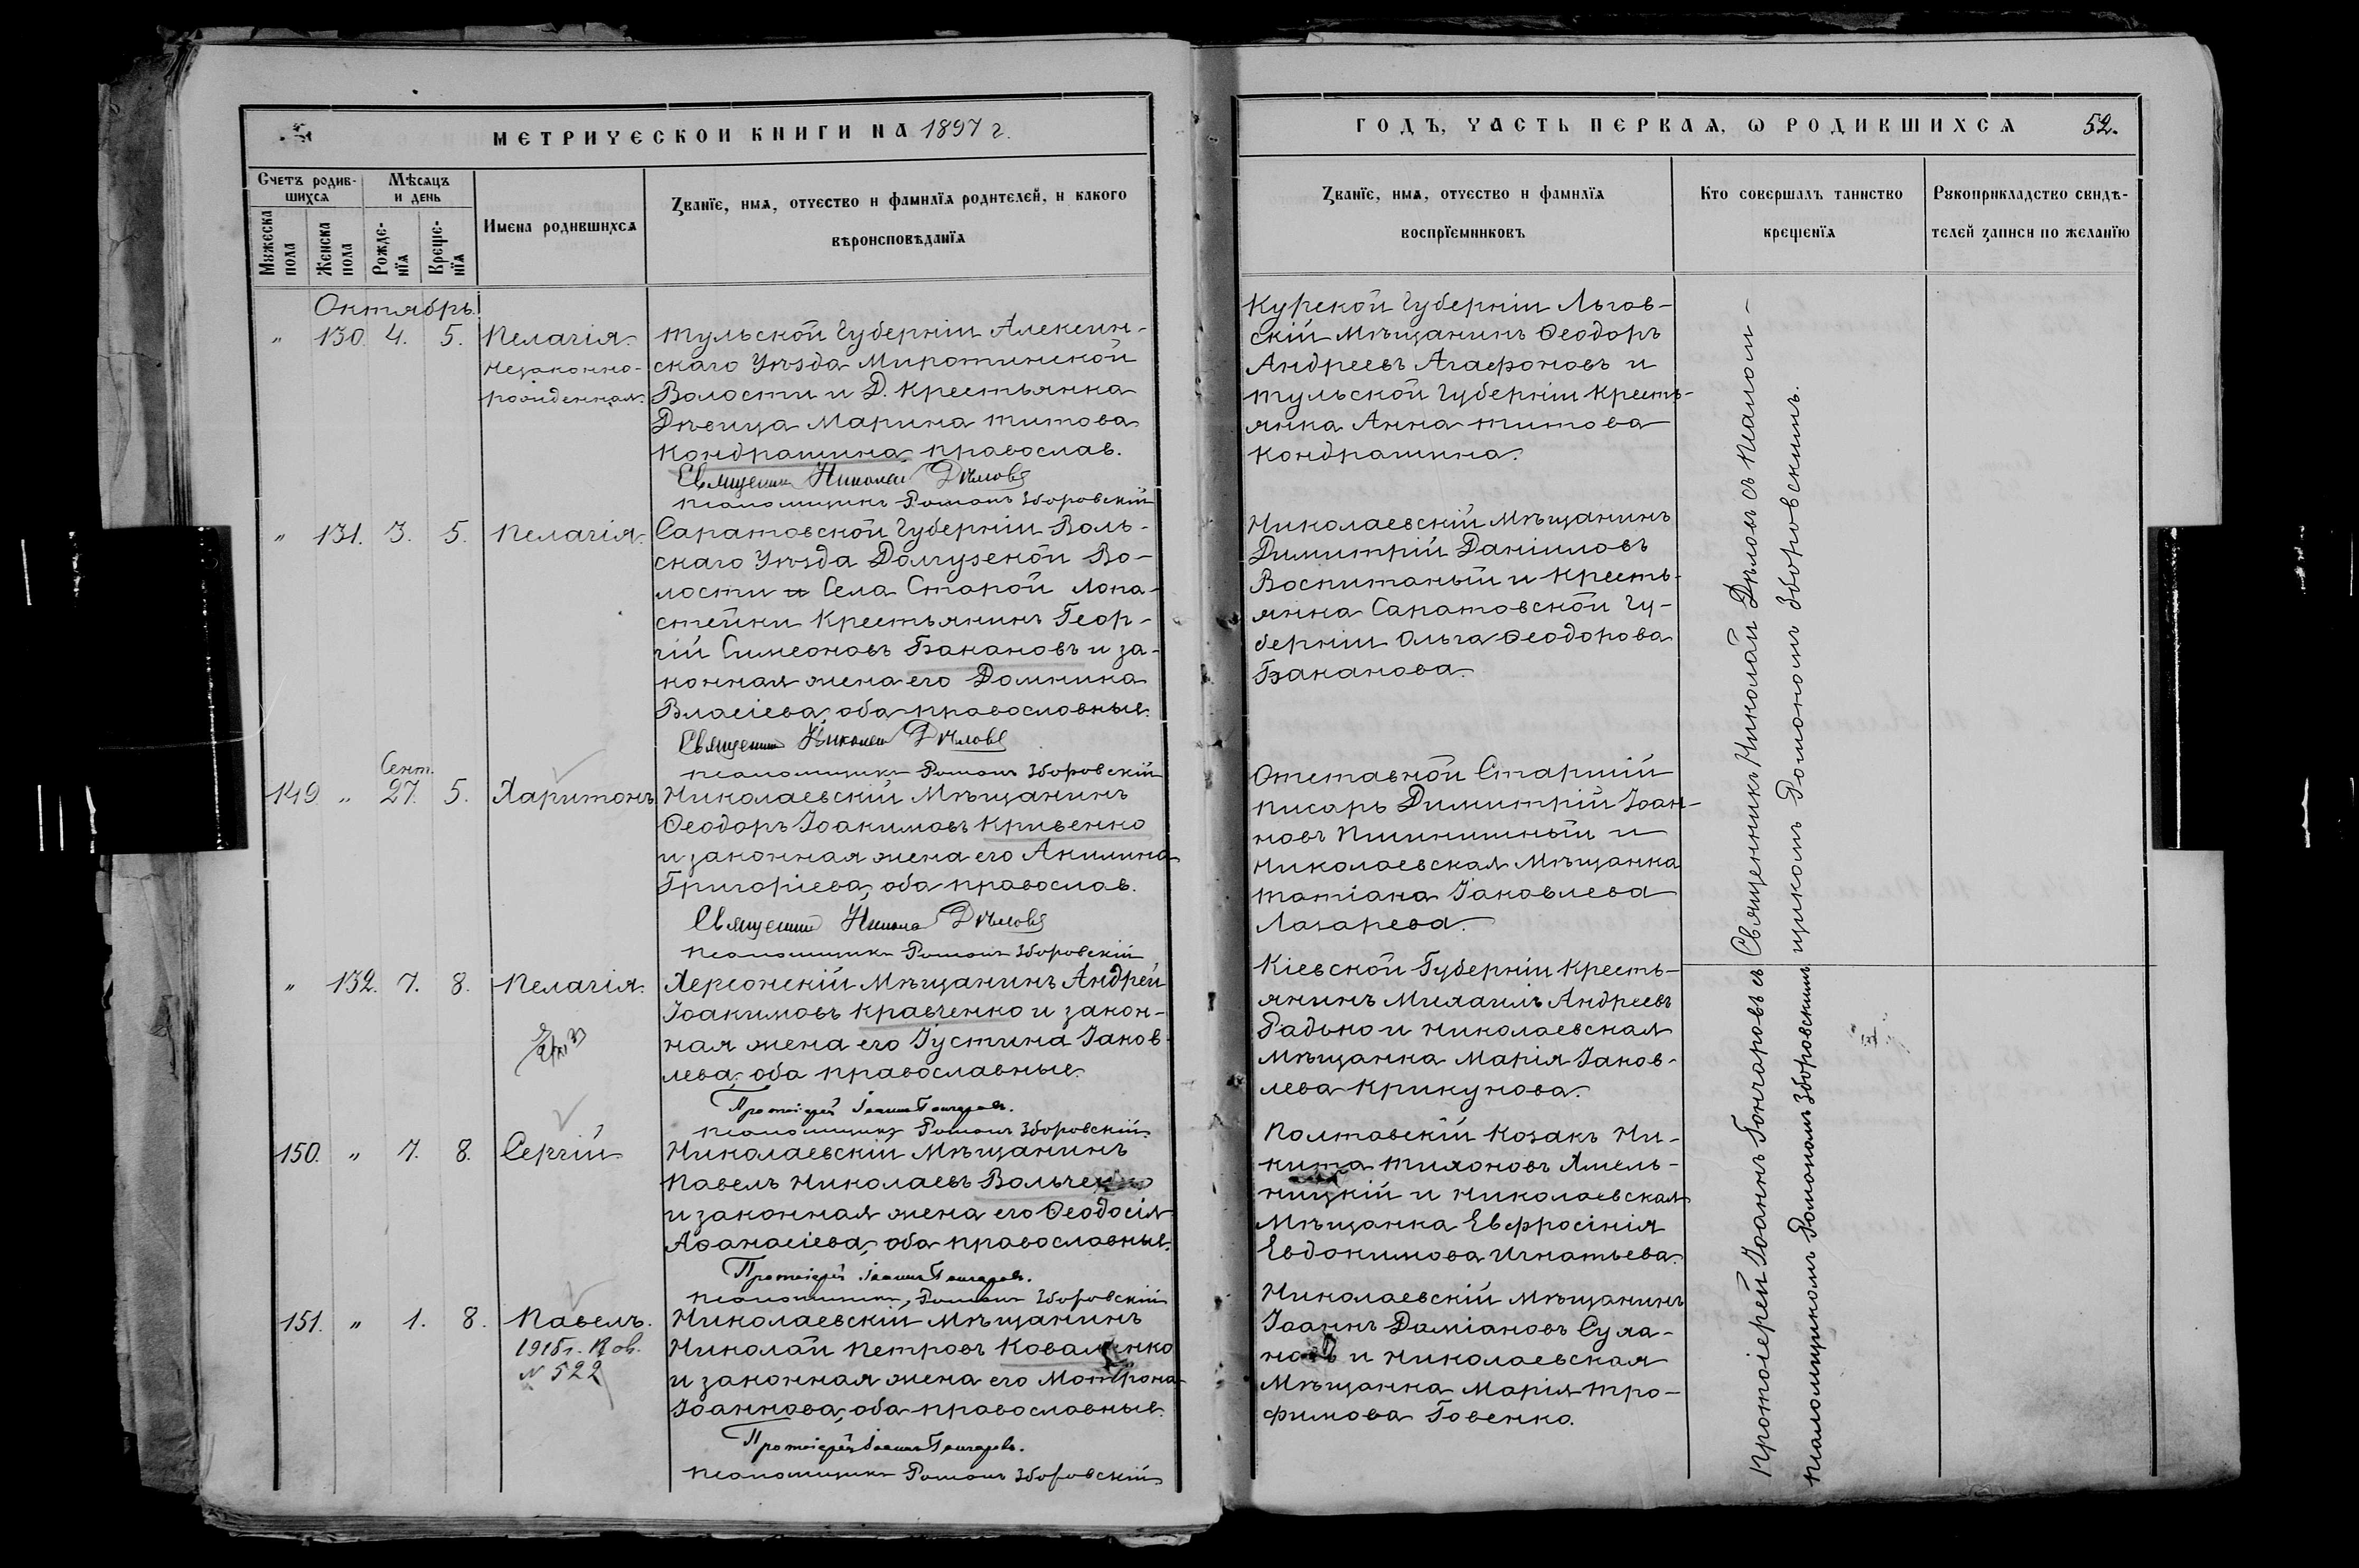 МЕТРИЧЕСКОЙ КНИГИ НА 1897 г.
Счетъ родив-
шихся
Мѣсяцъ
и день
Мужеска
пола
Женска
пола
Рожде-
нїя
Креще-
нїя
Имена родившихся
Званїе, имя, отчество и фамилїя родителей, и какого
вѣроисповѣданїя
Октябрь
" 130. 4. 5. Пелагія
незаконно-
рожденная.
Тульской Губерніи Алексин-
скаго Уѣзда Миротинской
Волости и Д. Крестьянка
Дѣвица Марина Титова
Кондрашина православ.
Священник Николай Дѣловъ
Псаломщикъ Романъ Зборовскій
" 131. 3. 5. Пелагія.
Саратовской Губерніи Воль-
скаго Уѣзда Болтузской Во-
лости и Села Старой Лопа-
стейки Крестьянинъ Геор-
гій Симеоновъ Бакановъ и за-
конная жена его Домнина
Власіева, оба православные.
Священник Николай Дѣловъ
Псаломщикъ Романъ Зборовскій
Сент.
149. " 27. 5. Харитонъ
Николаевскій Мѣщанинъ
Ѳеодоръ Іоакимовъ Кривенко
и законная жена его Акилина
Григоріева, оба православ.
Священник Николай Дѣловъ
Псаломщикъ Романъ Зборовскій
" 132. 7. 8. Пелагія.
Херсонскій Мѣщанинъ Андрей
Іоакимовъ Кравченко и закон-
ная жена его Іустина Іаков-
лева, оба православные.
Протоіерей Іоаннъ Гончаровъ.
Псаломщикъ Романъ Зборовскій.
150. " 7. 8. Сергій
Николаевскій Мѣщанинъ
Павелъ Николаевъ Вольчен
и законная жена его Ѳеодосія
Аѳанасіева, оба православные.
Протоіерей Іоаннъ Гончаровъ.
Псаломщикъ, Романъ Зборовскій
151. " 1. 8. Павелъ.
1915 г.
N 522
Николаевскій Мѣщанинъ
Николай Петровъ Коваленко
и законная жена его Матрона
Іоаннова, оба православные.
Протоіерей Іоаннъ Гончаровъ.
Псаломщикъ Романъ Зборовскій
ГОДЪ, ЧАСТЬ ПЕРВАЯ, Ѡ РОДИВШИХСЯ 52.
Званїе, имя, отчество и фамилїя
воспрїемниковъ
Кто совершалъ таинство
крещенїя
Рукоприкладство свидѣ-
телей записи по желанїю
Курской Губерніи Льгов-
скій Мѣщанинъ Ѳеодоръ
Андреевъ Агафоновъ и
Тульской Губерніи Кресть-
янка Анна Титова
Кондрашина.
Николаевскій Мѣщанинъ
Димитрій Даніиловъ
Воспитаный и Кресть-
янка Саратовской Гу-
берніи Ольга Ѳеодорова
Баканова.
Отставной Старшій
писарь Димитрій Іоан-
новъ Пшиничный и
Николаевская Мѣщанка
Татіана Іаковлева
Лазарева.
Кіевской Губерніи Кресть-
янинъ Михаилъ Андреевъ
Радько и Николаевская
Мѣщанка Марія Іаков-
лева Крикунова.
Полтавскій Козакъ Ни-
кита Тихоновъ Хмель-
ницкій и Николаевская
Мѣщанка Евфросинія
Евдокимова Игнатьева.
Николаевскій Мѣщанинъ
Іоаннъ Даміановъ Суха-
новъ и Николаевская
Мѣщанка Марія Тро-
фимова Говенко.
Священникъ Николай Дѣловъ съ Псалом-
щикомъ Романомъ Зборовскимъ.
Протоіерей Іоаннъ Гончаровъ съ
Псаломщикомъ Романомъ Зборовскимъ